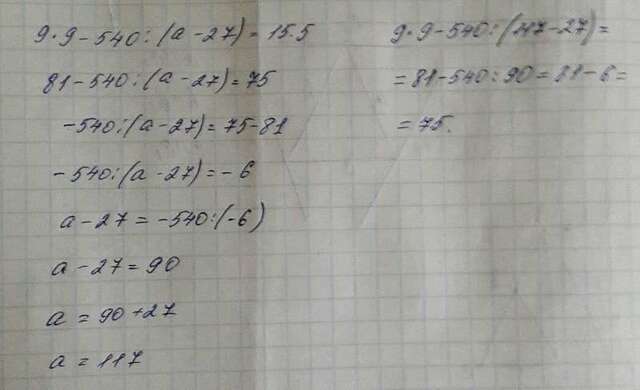 9·9-540:(a-27)=15·5
81-540:(a-27)=75
-540:(a-27)=75-81
-540:(a-27)=-6
a-27=-540:(-6)
a-27=90
a=90+27
a=117
9·9-540:(117-27)=
=81-540:90=81-6=
=75.